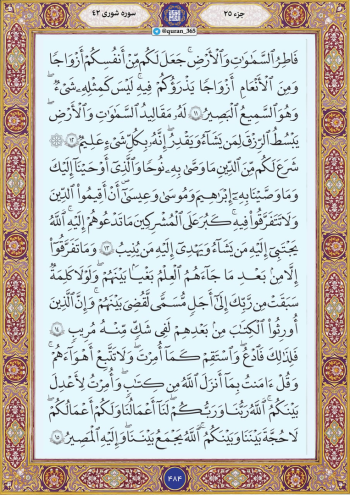 جزء ۲۵
@quran_365
سوره شوری ۴۲
فَاطِرُ ٱلسَّمَٰوَٰتِ وَٱلْأَرْضِ ۚ جَعَلَ لَكُم مِّنْ أَنفُسِكُمْ أَزْوَٰجًا
وَمِنَ ٱلْأَنْعَٰمِ أَزْوَٰجًا ۖ يَذْرَؤُكُمْ فِيهِ ۚ لَيْسَ كَمِثْلِهِۦ شَىْءٌ ۖ
وَهُوَ ٱلسَّمِيعُ ٱلْبَصِيرُ ۝١١ لَهُۥ مَقَالِيدُ ٱلسَّمَٰوَٰتِ وَٱلْأَرْضِ ۖ
يَبْسُطُ ٱلرِّزْقَ لِمَن يَشَآءُ وَيَقْدِرُ ۚ إِنَّهُۥ بِكُلِّ شَىْءٍ عَلِيمٌ ۝١٢
شَرَعَ لَكُم مِّنَ ٱلدِّينِ مَا وَصَّىٰ بِهِۦ نُوحًا وَٱلَّذِىٓ أَوْحَيْنَآ إِلَيْكَ
وَمَا وَصَّيْنَا بِهِۦٓ إِبْرَٰهِيمَ وَمُوسَىٰ وَعِيسَىٰٓ ۖ أَنْ أَقِيمُوا۟ ٱلدِّينَ
وَلَا تَتَفَرَّقُوا۟ فِيهِ ۚ كَبُرَ عَلَى ٱلْمُشْرِكِينَ مَا تَدْعُوهُمْ إِلَيْهِ ۚ ٱللَّهُ
يَجْتَبِىٓ إِلَيْهِ مَن يَشَآءُ وَيَهْدِىٓ إِلَيْهِ مَن يُنِيبُ ۝١٣ وَمَا تَفَرَّقُوٓا۟
إِلَّا مِنۢ بَعْدِ مَا جَآءَهُمُ ٱلْعِلْمُ بَغْيًۢا بَيْنَهُمْ ۚ وَلَوْلَا كَلِمَةٌ
سَبَقَتْ مِن رَّبِّكَ إِلَىٰٓ أَجَلٍ مُّسَمًّى لَّقُضِىَ بَيْنَهُمْ ۚ وَإِنَّ ٱلَّذِينَ
أُورِثُوا۟ ٱلْكِتَٰبَ مِنۢ بَعْدِهِمْ لَفِى شَكٍّ مِّنْهُ مُرِيبٍ ۝١٤
فَلِذَٰلِكَ فَٱدْعُ ۖ وَٱسْتَقِمْ كَمَآ أُمِرْتَ ۖ وَلَا تَتَّبِعْ أَهْوَآءَهُمْ ۖ
وَقُلْ ءَامَنتُ بِمَآ أَنزَلَ ٱللَّهُ مِن كِتَٰبٍ ۖ وَأُمِرْتُ لِأَعْدِلَ
بَيْنَكُمُ ۖ ٱللَّهُ رَبُّنَا وَرَبُّكُمْ ۖ لَنَآ أَعْمَٰلُنَا وَلَكُمْ أَعْمَٰلُكُمْ ۖ
لَا حُجَّةَ بَيْنَنَا وَبَيْنَكُمُ ۖ ٱللَّهُ يَجْمَعُ بَيْنَنَا ۖ وَإِلَيْهِ ٱلْمَصِيرُ ۝١٥
۴۸۴